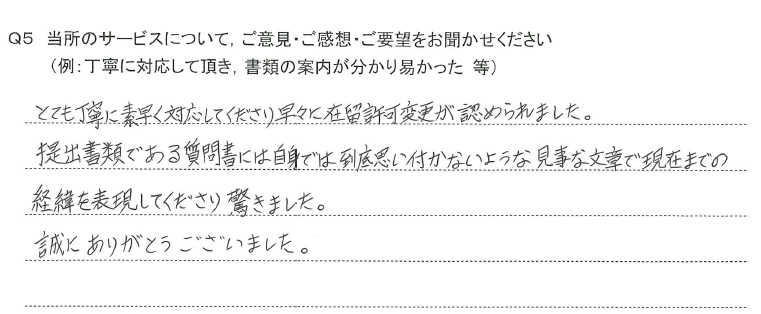 Q5 当所のサービスについて，ご意見・ご感想・ご要望をお聞かせください
（例：丁寧に対応して頂き，書類の案内が分かり易かった 等）
とても丁寧に素早く対応してくださり早々に在留許可変更が認められました。
提出書類である質問書には自身では到底思い付かないような見事な文章で現在までの
経緯を表現してくださり驚きました。
誠にありがとうございました。